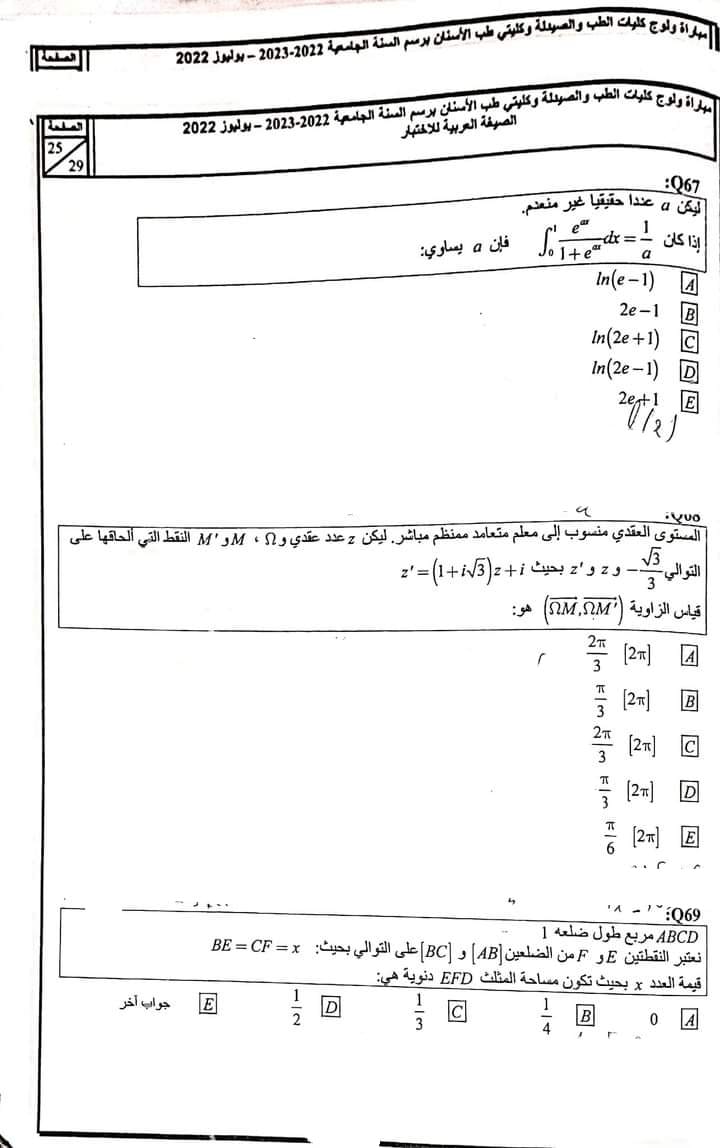 مباراة ولوج كليات الطب والصيدلة وكليتي طب الأسنان برسم السنة الجامعية 2022-2023 – يوليوز 2022
الصفحة
مباراة ولوج كليات الطب والصيدلة وكليتي طب الأسنان برسم السنة الجامعية 2022-2023 – يوليوز 2022
الصيغة العربية للاختبار
الصفحة
25/29
Q67:
ليكن a عددا حقيقيا غير منعدم.
إذا كان ∫₀¹ e^{ax}/(1+e^{ax}) dx = 1/a فإن a يساوي:
A ln(e−1)
B 2e−1
C ln(2e+1)
D ln(2e−1)
E 2e+1
المستوى العقدي منسوب إلى معلم متعامد ممنظم مباشر. ليكن z عدد عقدي و Ω ، M و M' النقط التي ألحاقها على
التوالي −√3/3 و z و z' بحيث z' = (1+i√3)z+i
قياس الزاوية (ΩM, ΩM') هو:
A 2π/3 [2π]
B π/3 [2π]
C 2π/3 [2π]
D π/3 [2π]
E π/6 [2π]
Q69:
ABCD مربع طول ضلعه 1
نعتبر النقطتين E و F من الضلعين [AB] و [BC] على التوالي بحيث: BE = CF = x
قيمة العدد x بحيث تكون مساحة المثلث EFD دنوية هي:
A 0 B 1/4 C 1/3 D 1/2 E جواب آخر